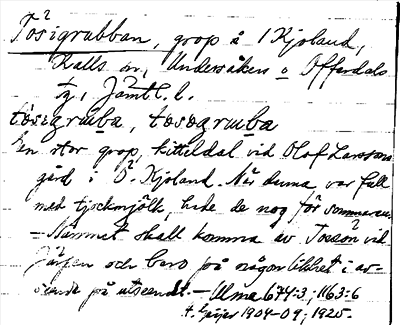 Tosigrubban, grop å 1 Kjoland,
Kalls sn, Undersåkers o Offerdals
tg, Jämtl. l.
tòsigrum̀ba, tòsogrumba
En stor grop, kitteldal vid Olof Larssons
gård i Ö. Kjoland. När denna var full
med tjockmjölk, hade de nog för sommaren.
– Namnet skall komma av Toson vid
Järpen och bero på någon likhet i av-
seende på utseendet. – Ulma 674:3; 1163:6
H. Geijer 1904-09; 1920.